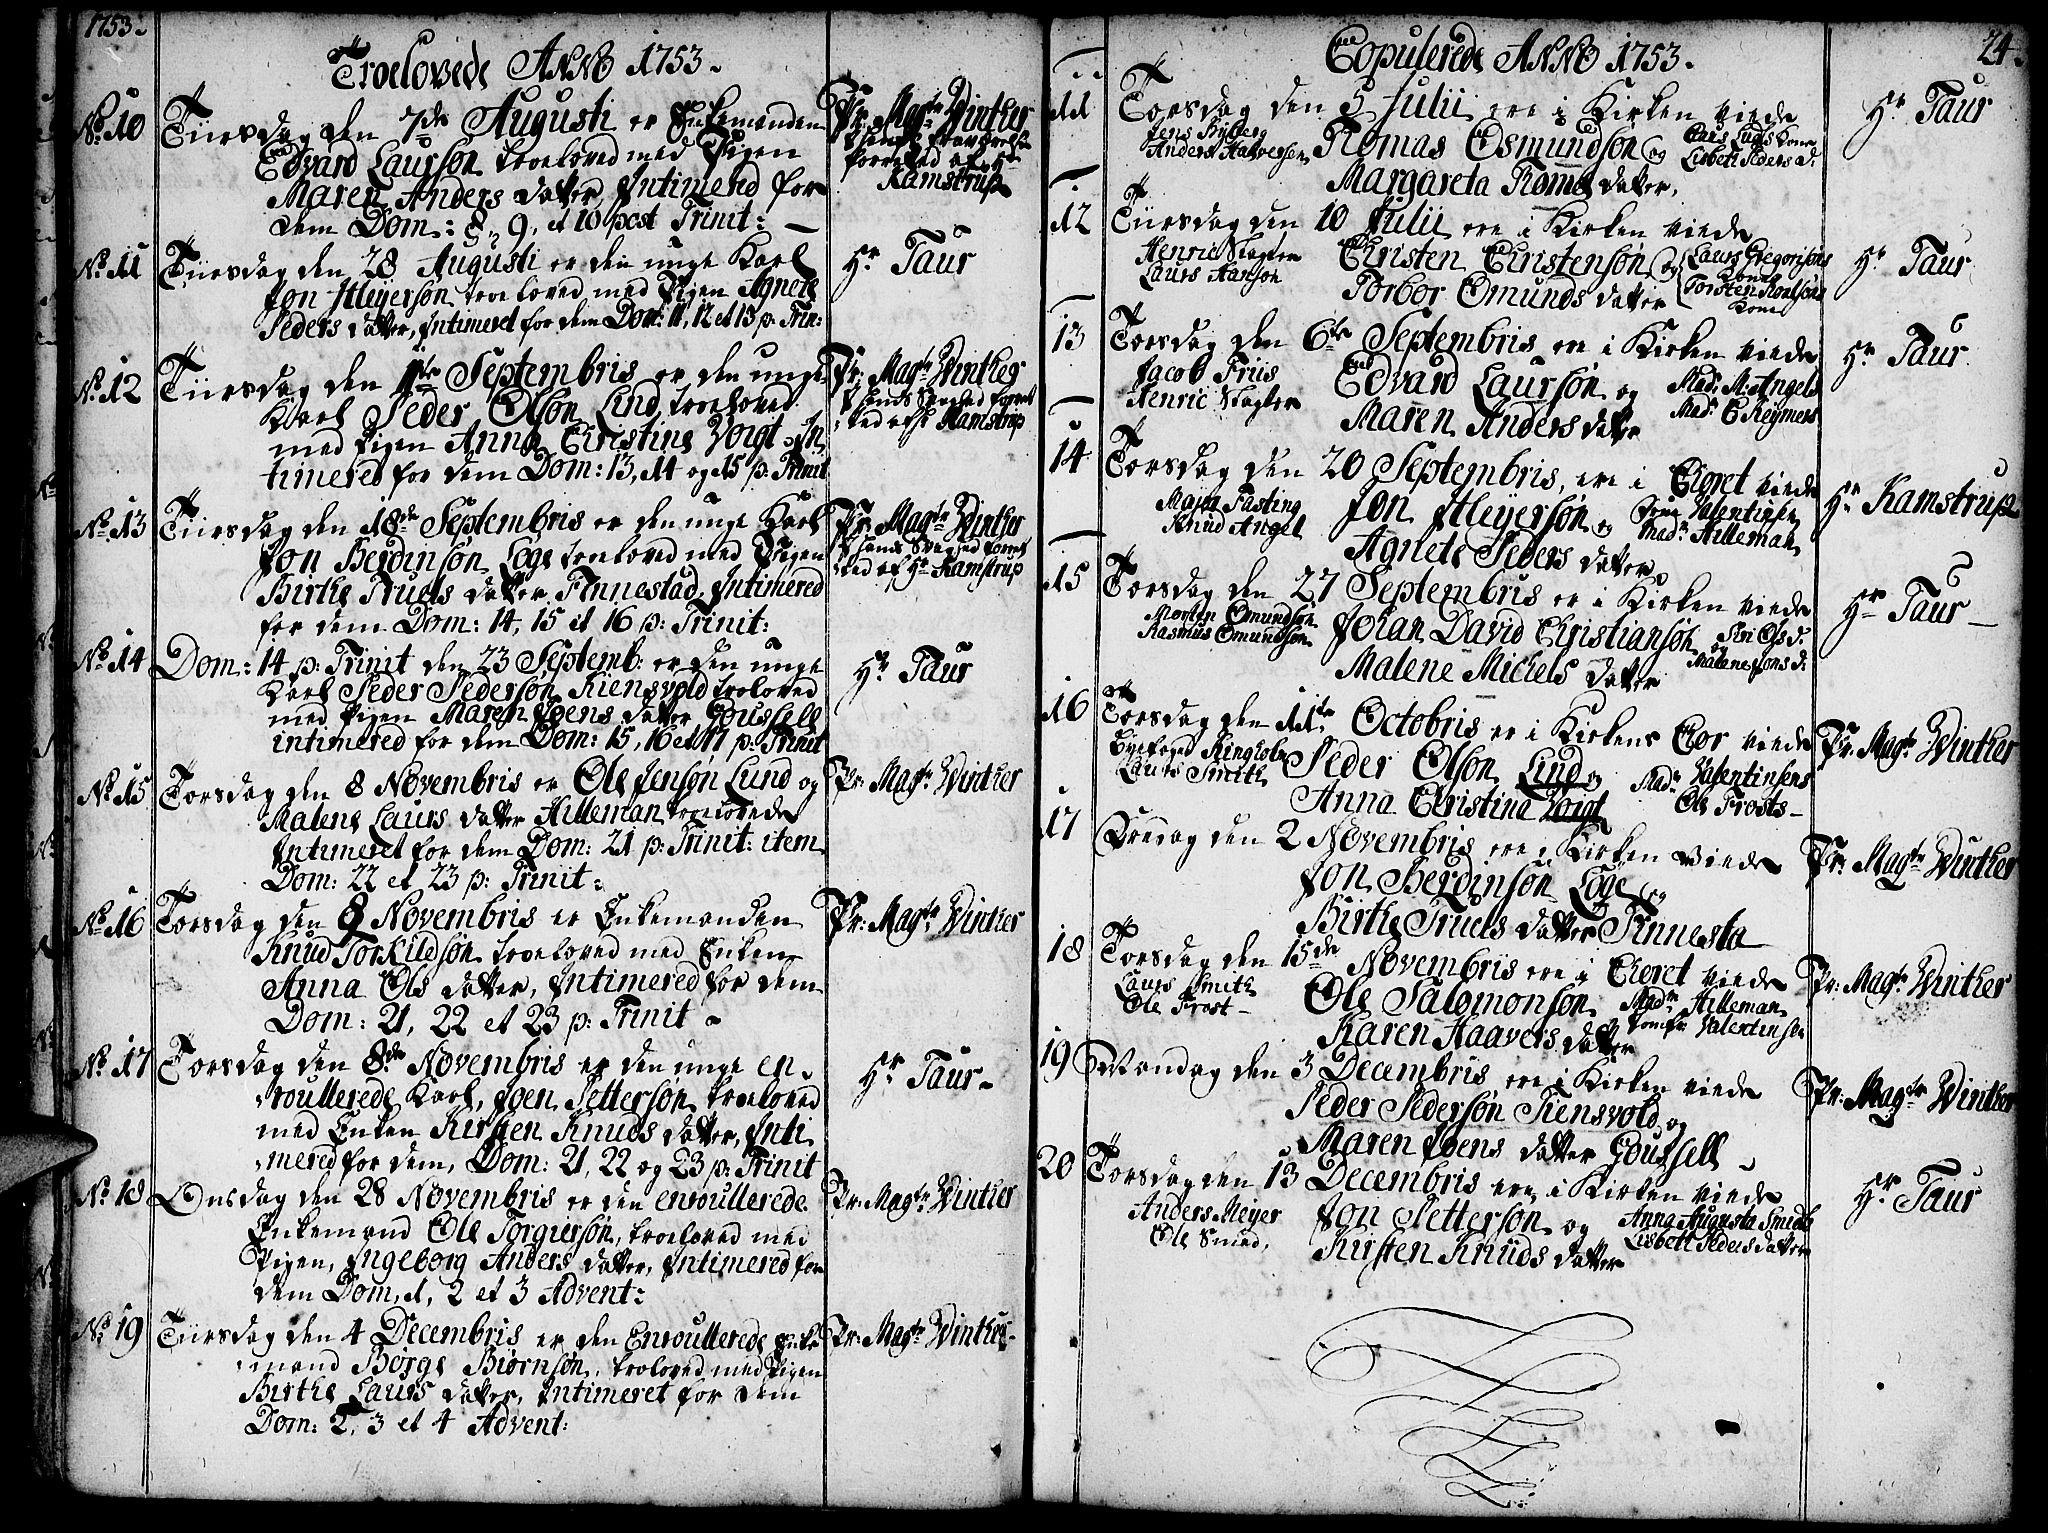 1753.
Troelovede ANNO 1753.
No. 10 Tiirsdag den 7de Augusti er Enkemanden
Edvard Laursøn troeloved med Pigen
Maren Anders datter, Intimered for
dem Dom: 8, 9, et 10 post Trinit:
Pr: Magr Winther
forretted af Hr
Kamstrup
No. 11 Tiirsdag den 28 Augusti er den unge Karl
Jon Meyersøn troeloved med Pigen Agnete
Peders datter, Intimeret for dem Dom: 11, 12 et 13 p: Trin:
Hr Taur
No. 12 Tiirsdag den 11te Septembris er den unge
Karl Peder Olsøn Lind, troeloved
med Pigen Anna Christina Voigt, In
timered for dem Dom: 13, 14 og 15 p: Trinit
Pr: Magr Winther
i hands Svaghed forret
ted af Hr Kamstrup
No. 13 Tiirsdag den 18de Septembris er den unge Karl
Jon Berdinsøn Løge troeloved med Pigen
Birthe Truels datter Finnestad, Intimered
for dem Dom: 14, 15 et 16 p: Trinit:
Pr: Magr Winther
i hands Svaghed forret
ted af Hr Kamstrup
No. 14 Dom: 14 p: Trinit den 23 Septemb: er den unge
Karl Peder Pedersøn Kiensvold troeloved
med Pigen Maren Joens datter Goussell
intimered for dem Dom: 15, 16 et 17 p: Trinit
Hr Taur
No. 15 Torsdag den 8 Novembris er Ole Jensøn Lund og
Malene Laurs datter Hilleman troelovede
Intimeret for dem Dom: 21 p: Trinit: item
Dom: 22 et 23 p: Trinit:
Pr: Magr Winther
No. 16 Torsdag den 8 Novembris er Enkemanden
Knud Torkildsøn troeloved med Enken
Anna Ols datter, Intimered for dem
Dom: 21, 22 et 23 p: Trinit
Pr: Magr Winther
No. 17 Torsdag den 8de Novembris er den unge en-
roullerede Karl, Joen Pettersøn troeloved
med Enken Kirsten Knuds datter, Inti
mered for dem, Dom: 21, 22 og 23 p: Trinit
Hr Taur
No. 18 Onsdag den 28 Novembris er den enroullerede
Enkemand Ole Torgiersøn, troeloved med
Pigen, Ingeborg Anders datter, Intimered for
dem Dom, 1, 2 et 3 Advent:
Pr: Magr Winther
No. 19 Tiirsdag den 4 Decembris er den Enroullerede Enke
mand Børge Biørnsøn, troeloved med Pigen
Birthe Laurs datter, Intimeret for dem
Dom: 2, 3 et 4 Advent:
Pr: Magr Winther
Copulerede ANNO 1753.
24.
11 Torsdag den 5 Julii ere i Kirken viede
Jens Byberg
Anders Halversen
Tomas Osmundsøn og
Margareta Toms datter,
Lisbeth Peders d:
Hr Taur
12 Tiirsdag den 10 Julii ere i Kirken viede
Henric Slagter
Laurs Hansøn
Christen Christensøn og
Torbor Omunds datter
Laurs Gregorisøns
Kone
Torsten Roalsøns
Kone
Hr Taur
13 Torsdag den 6te Septembris ere i Kirken viede
Jacob Friis
Henric Slagter
Edvard Laursøn og
Maren Anders datter
Mad: M: Angels
Mad: C Reymers
Hr Taur
14 Torsdag den 20 Septembris, ere i Choret viede
Major Fasting
Knud Angel
Jon Meyersøn og
Agnete Peders datter
Valentinsen
Mad: Hilleman
Hr Kamstrup
15 Torsdag den 27 Septembris er i Kirken viede
Morten Omundsøn
Rasmus Omundsøn
Johan David Christiansøn og
Malene Michels datter
Siri Ols d:
Malene Jons d:
Hr Taur
16 Torsdag den 11te Octobris er i Kirkens Chor viede
Byefoged Ringholm
Laurs Smith
Peder Olsøn Lind og
Anna Christina Voigt
Mad: Valentinsens
Ole Frosts
Pr: Magr Winther
17 Fredag den 2 Novembris ere i Kirken viede
Jon Berdinsøn Løge og
Birthe Truels datter Finnesta
Pr: Magr Winther
18 Torsdag den 15de Novembris ere i Choret viede
Laurs Smith
Ole Frost
Ole Salomonsøn
Karen Haavers datter
Mad: Hilleman
Jomfr Valentinsen
Pr: Magr Winther
19 Mandag den 3 Decembris ere i Kirken viede
Peder Pedersøn Tiensvold og
Maren Joens datter Goussell
Pr: Magr Winther
20 Torsdag den 13 Decembris ere i Kirken viede
Anders Meyer
Ole Smed,
Jon Pettersøn og
Kirsten Knuds datter
Anna Augusta Smidt
Lisbeth Peders datter
Hr Taur